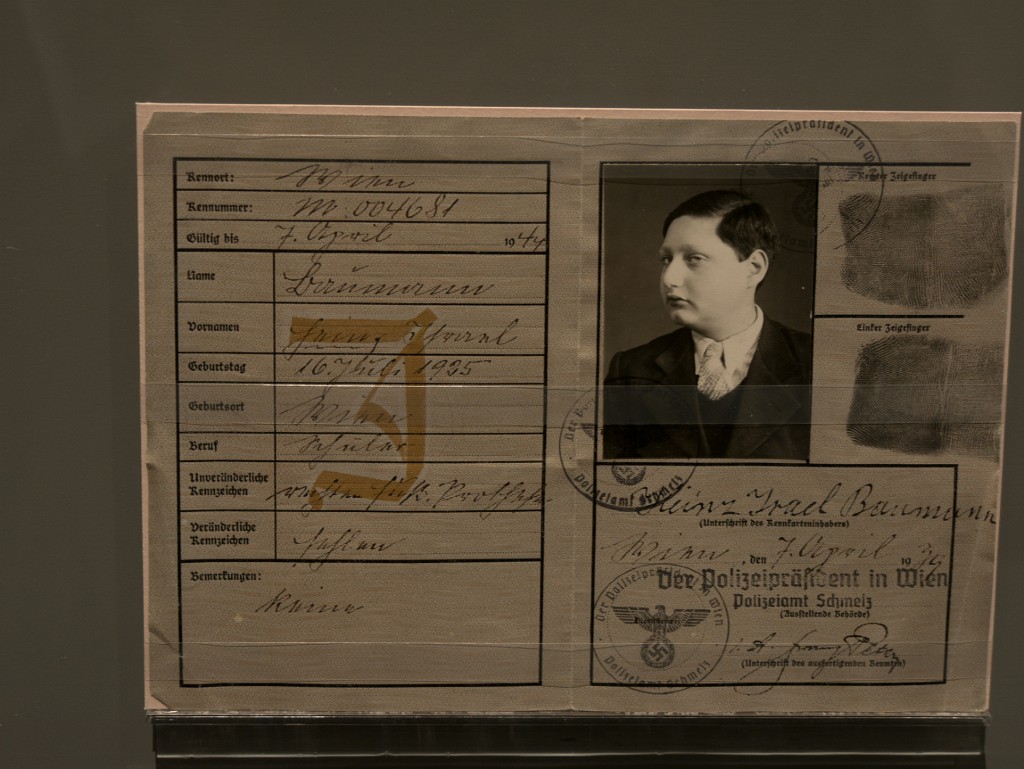 Kennort: Wien
Kennummer: Nr. 004681
Gültig bis 7. April 1944
Name Baumann
Vornamen Heinz Israel
Geburtstag 16. Juli 1925
Geburtsort Wien
Beruf Schüler
Unveränderliche Kennzeichen rechter Fuß. Prothese
Veränderliche Kennzeichen fehlen
Bemerkungen:
keine
J
Polizeipräsident in Wien
Rechter Zeigefinger
Linker Zeigefinger
Polizeiamt Schmelz
Heinz Israel Baumann
(Unterschrift des Kennkarteninhabers)
Wien, den 7. April 1939
Der Polizeipräsident in Wien
Polizeiamt Schmelz
(Ausstellende Behörde)
Der Polizeipräsident in Wien
Polizeiamt Schmelz
i. A.
(Unterschrift des ausfertigenden Beamten)